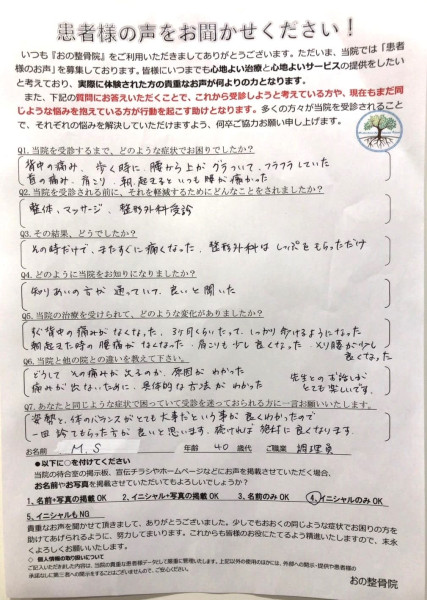 患者様の声をお聞かせください！
いつも『おの整骨院』をご利用いただきましてありがとうございます。ただいま、当院では「患者
様のお声」を募集しております。皆様にいつまでも心地よい治療と心地よいサービスの提供をしたい
と考えており、実際に体験された方の貴重なお声が何よりの力となります。
また、下記の質問にお答えいただくことで、これから受診しようと考えている方や、現在もまだ同
じような悩みを抱えている方が行動を起こす助けとなります。多くの方々が当院を受診されること
で、それぞれの悩みを解決していただけますよう、何卒ご協力お願い申し上げます。
Q1. 当院を受診するまで、どのような症状でお困りでしたか？
背中の痛み、歩く時に腰から上がグラついて、フラフラしていた
首の痛み、肩こり、朝、起きるといつも腰が痛かった
Q2. 当院を受診される前に、それを軽減するためにどんなことをされましたか？
整体、マッサージ、整形外科受診
Q3. その結果、どうでしたか？
その時だけで、またすぐに痛くなった、整形外科はしっぷをもらっただけ
Q4. どのように当院をお知りになりましたか？
知りあいの方が通っていて、良いと聞いた
Q5. 当院の治療を受けられて、どのような変化がありましたか？
すぐ背中の痛みがなくなった、3ヶ月くらいたって、しっかり歩けるようになった
朝起きた時の腰痛がなくなった、肩こりも少し良くなった、反り腰が少し
良くなった
Q6. 当院と他の院との違いを教えて下さい。
どうしてその痛みが出るのか、原因がわかった
痛みが出ないために、具体的な方法がわかった
先生とのお話しが
とても楽しいです。
Q7. あなたと同じような症状で困っていて受診を迷っておられる方に一言お願いいたします。
姿勢と、体のバランスがとても大事だという事が良くわかったので
一回診てもらった方が良いと思います。続ければ絶対に良くなります。
お名前 M.S 年齢 40 歳代 ご職業 調理員
●以下に○を付けてください
当院の待合室の掲示板、宣伝チラシやホームページなどにお声を掲載させていただく場合、
お名前やお写真を掲載させていただいてもよろしいでしょうか？
1、名前・写真の掲載OK 2、イニシャル・写真の掲載OK 3、名前のみOK 4、イニシャルのみOK
5、イニシャルもNG
貴重なお声を聞かせて頂きまして、ありがとうございました。少しでもおおくの同じような症状でお困りの方を
助けてあげられるように、努力してまいります。これからも皆様のお役にたてるよう精進いたしますので、末永
くよろしくお願いいたします。
◇ 個人情報の取り扱いについて
ご記入いただきました内容は、当院の貴重な患者様データとして厳重に管理いたします。上記以外の使用のほかには、外部への開示・提供や患者様の
承諾なしに第三者への開示することはございませんので、ご安心ください。
おの整骨院